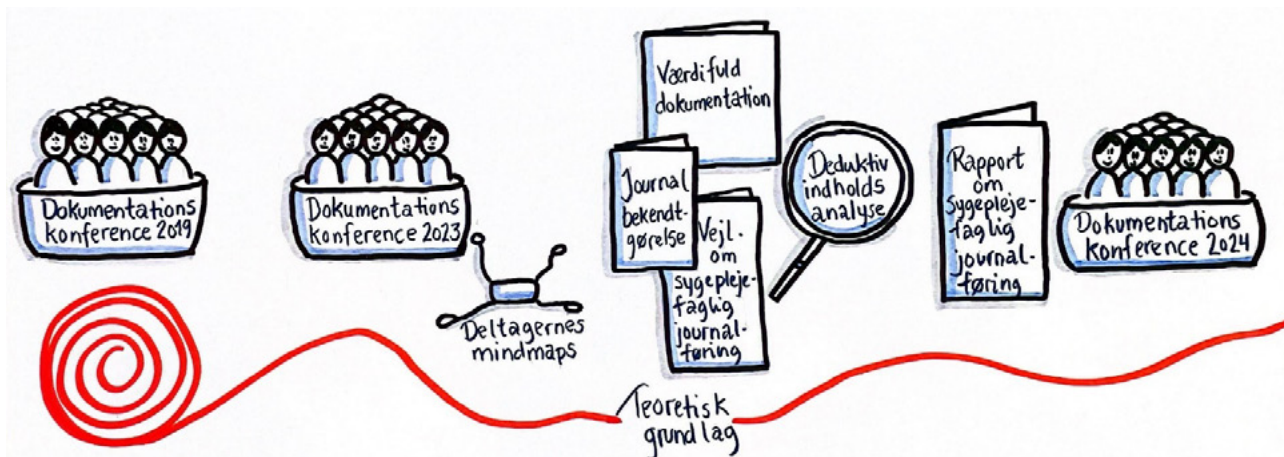 Dokumentations
konference 2019
Dokumentations
konference 2023
Deltagernes
mindmaps
Værdifuld
dokumentation
Journal
bekendt-
gørelse
Vejl.
om
sygepleje-
faglig
journal-
føring
Deduktiv
indholds
analyse
Teoretisk
grundlag
Rapport
om
sygepleje-
faglig
journal-
føring
Dokumentations
konference 2024